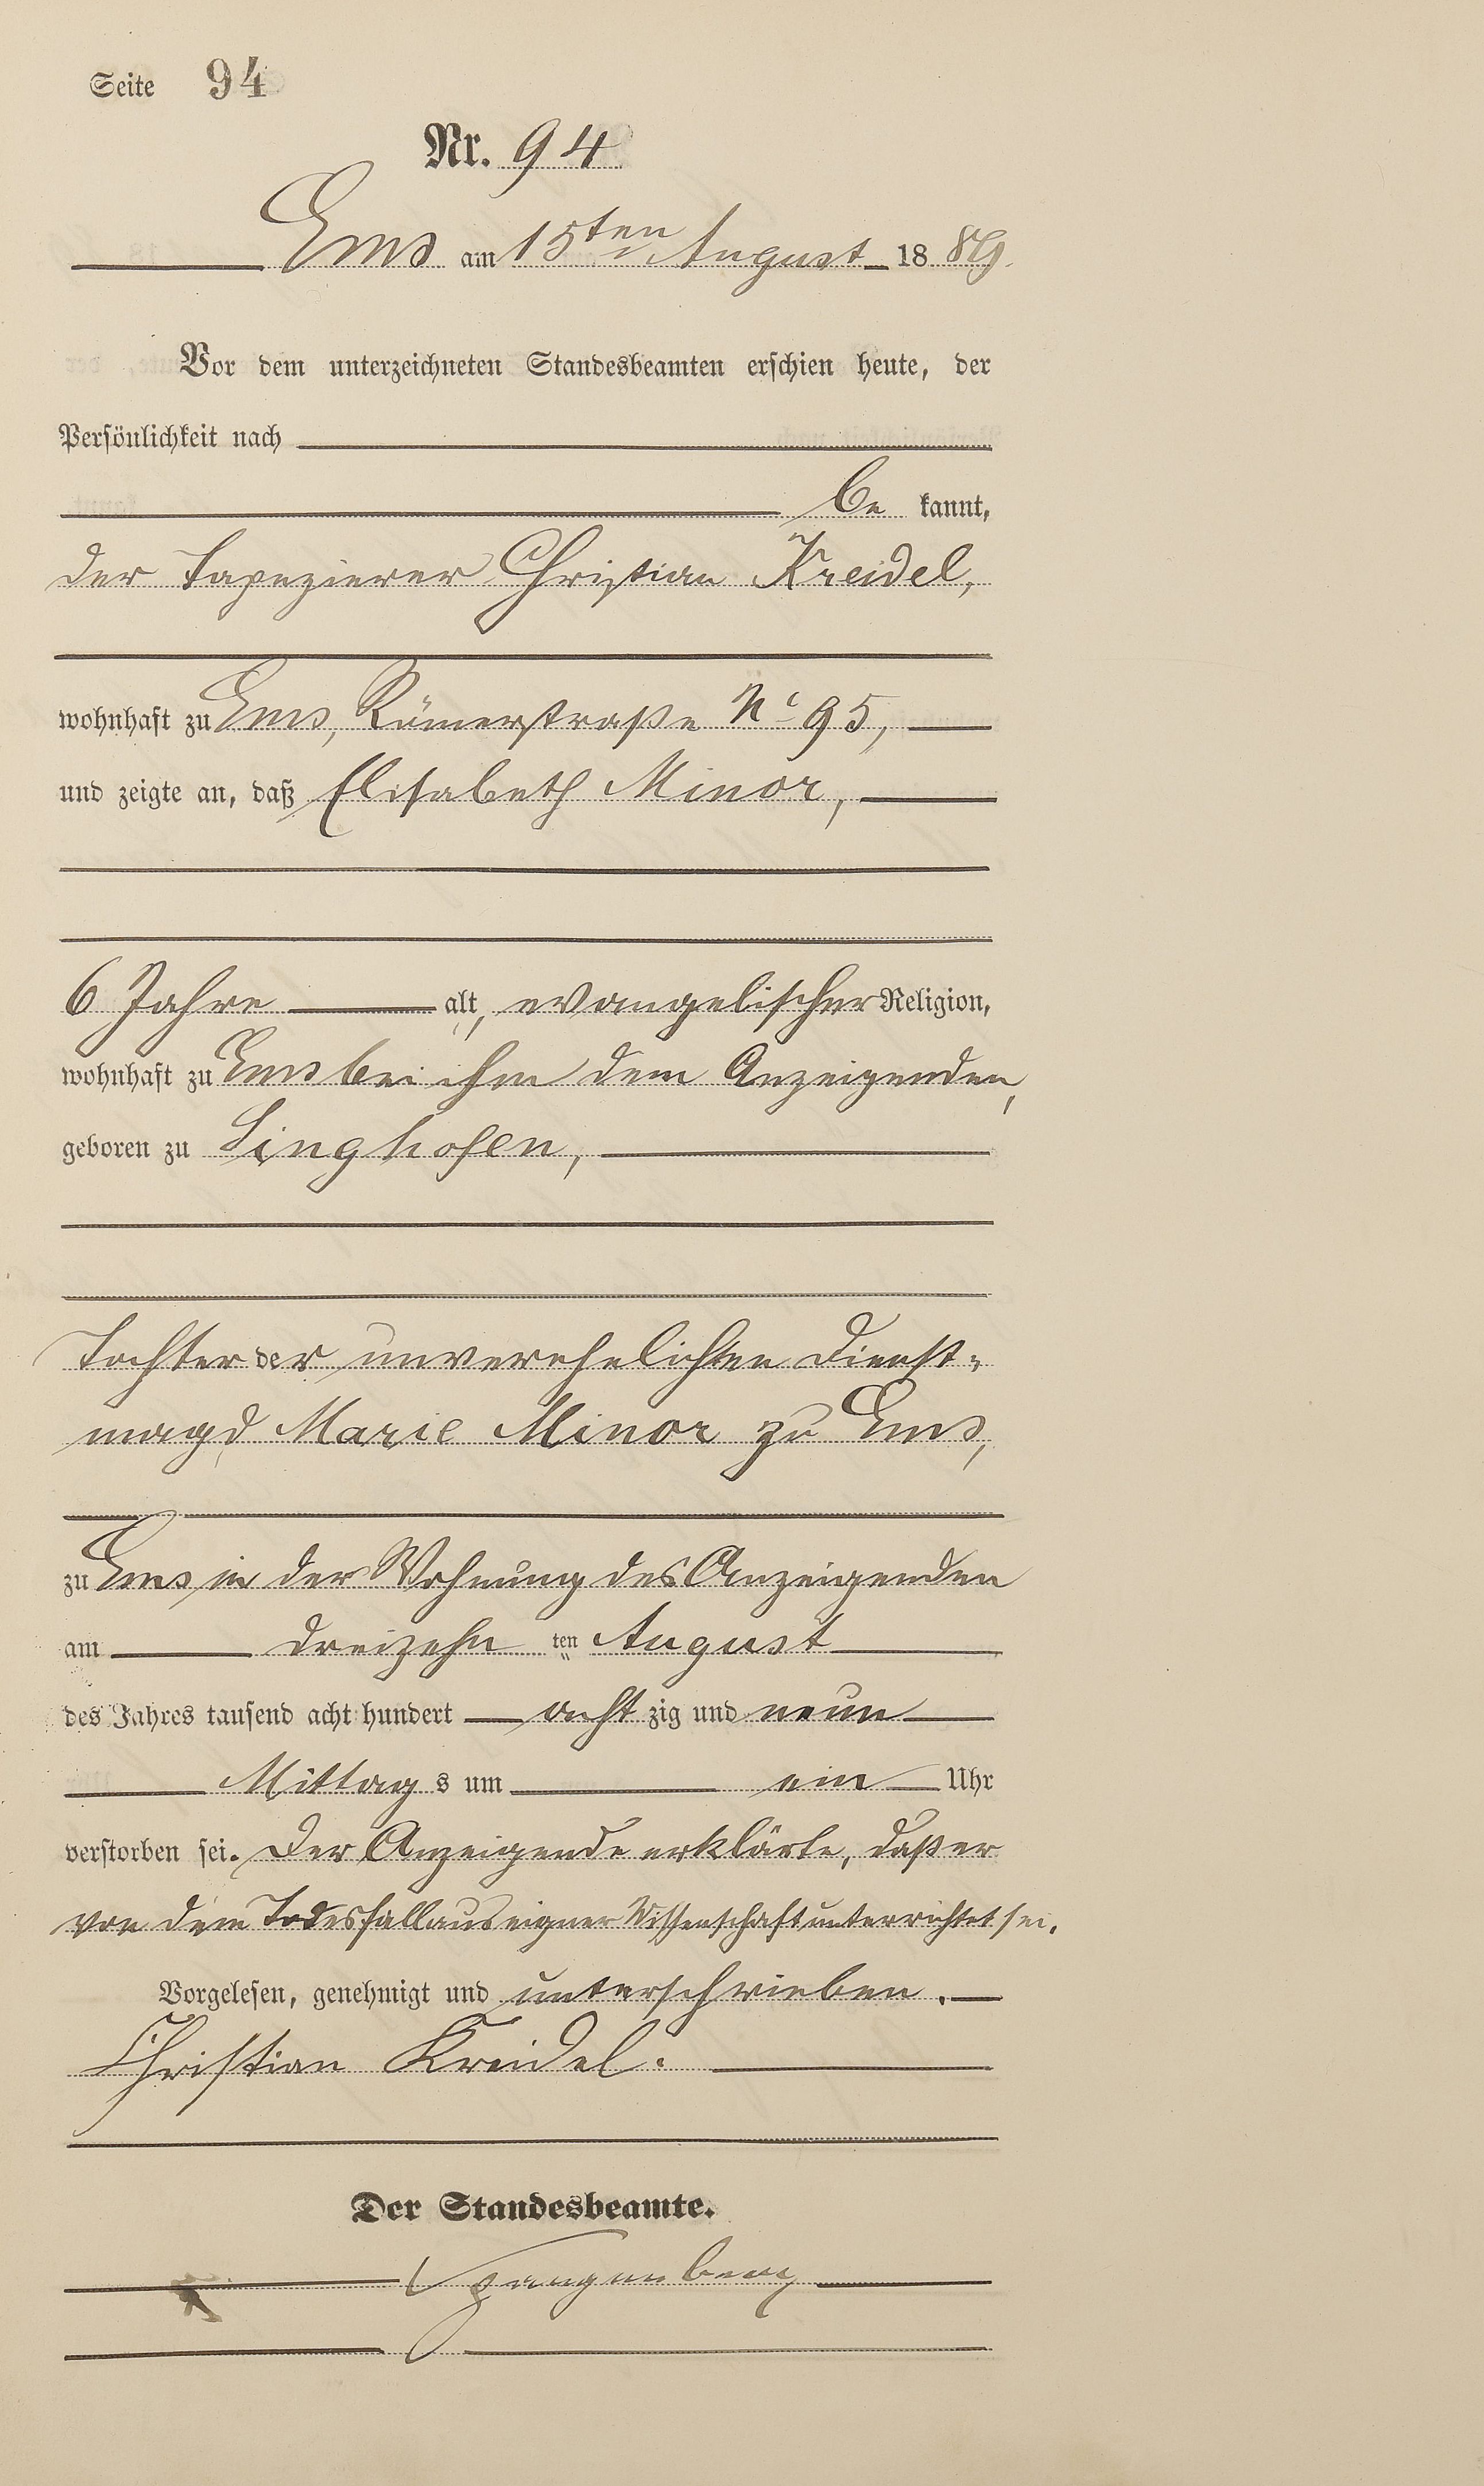 Seite 94
Nr. 94
Ems am 15ten August 1889.
Vor dem unterzeichneten Standesbeamten erschien heute, der
Persönlichkeit nach
be kannt,
der Tapezierer Christian Kreidel,
wohnhaft zu Ems, Römerstraße No 95,
und zeigte an, daß Elisabeth Minor,
6 Jahre alt, evangelischer Religion,
wohnhaft zu Ems bei ihm dem Anzeigenden,
geboren zu Singhofen,
Tochter der unverehelichten Dienst-
magd Marie Minor zu Ems,
zu Ems in der Wohnung des Anzeigenden
am dreizehn ten August
des Jahres tausend acht hundert acht zig und neun
Mittag s um ein Uhr
verstorben sei. Der Anzeigende erklärte, daß er
von dem Todesfall aus eigner Wissenschaft unterrichtet sei.
Vorgelesen, genehmigt und unterschrieben.
Christian Kreidel.
Der Standesbeamte.
Spangenberg